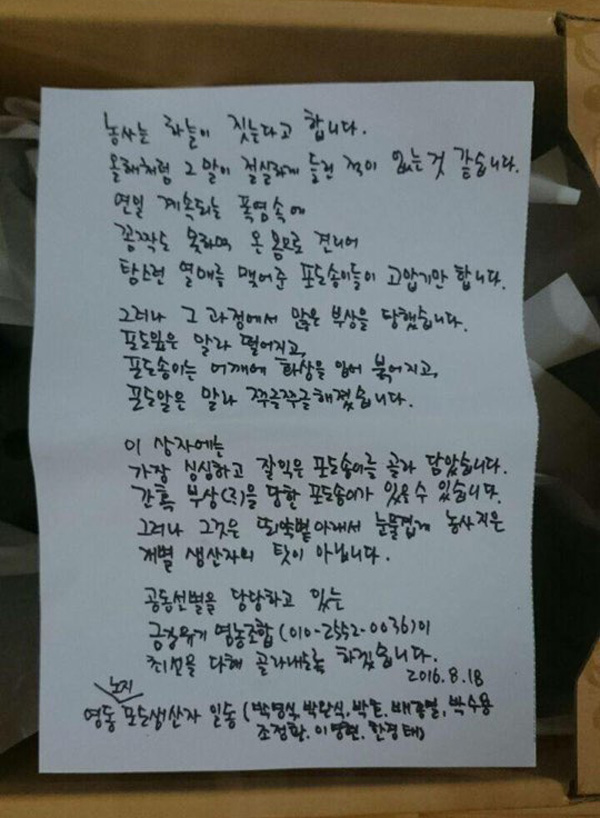 농사는 하늘이 짓는다고 합니다.
올해처럼 그 말이 절실하게 들린 적이 없는것 같습니다.
연일 계속되는 폭염속에
꼼짝도 못하며 온 몸으로 견디어
탐스런 열매를 맺어준 포도송이들이 고맙기만 합니다.
그러나 그 과정에서 많은 부상을 당했습니다.
포도잎은 말라 떨어지고,
포도송이는 어깨에 화상을 입어 붉어지고,
포도알은 말라 쭈글쭈글해졌습니다.
이 상자에는
가장 싱싱하고 잘익은 포도송이를 골라 담았습니다.
간혹 부상(?)을 당한 포도송이가 있을 수 있습니다.
그러나 그것은 뙤약볕아래서 눈물겹게 농사지은
개별 생산자의 탓이 아닙니다.
공동선별을 담당하고 있는
금강유기 영농조합 (010-2552-0036)이
최선을 다해 골라내도록 하겠습니다.
2016.8.18
노지
영동 포도생산자 일동 (박명식, 박완식, 박수용
조정환, 이명현, 한경태)